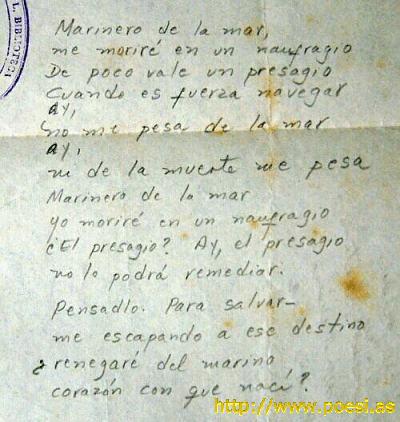 L. BIBLIOTECA
Marinero de la mar,
me moriré en un naufragio
De poco vale un presagio
Cuando es fuerza navegar
Ay,
no me pesa de la mar
Ay,
ni de la muerte me pesa
Marinero de la mar
yo moriré en un naufragio
¿El presagio? Ay, el presagio
no lo podrá remediar.
Pensadlo. Para salvar-
me escapando a ese destino
¿renegaré del marino
corazón con que nací?
http://www.poesi.as